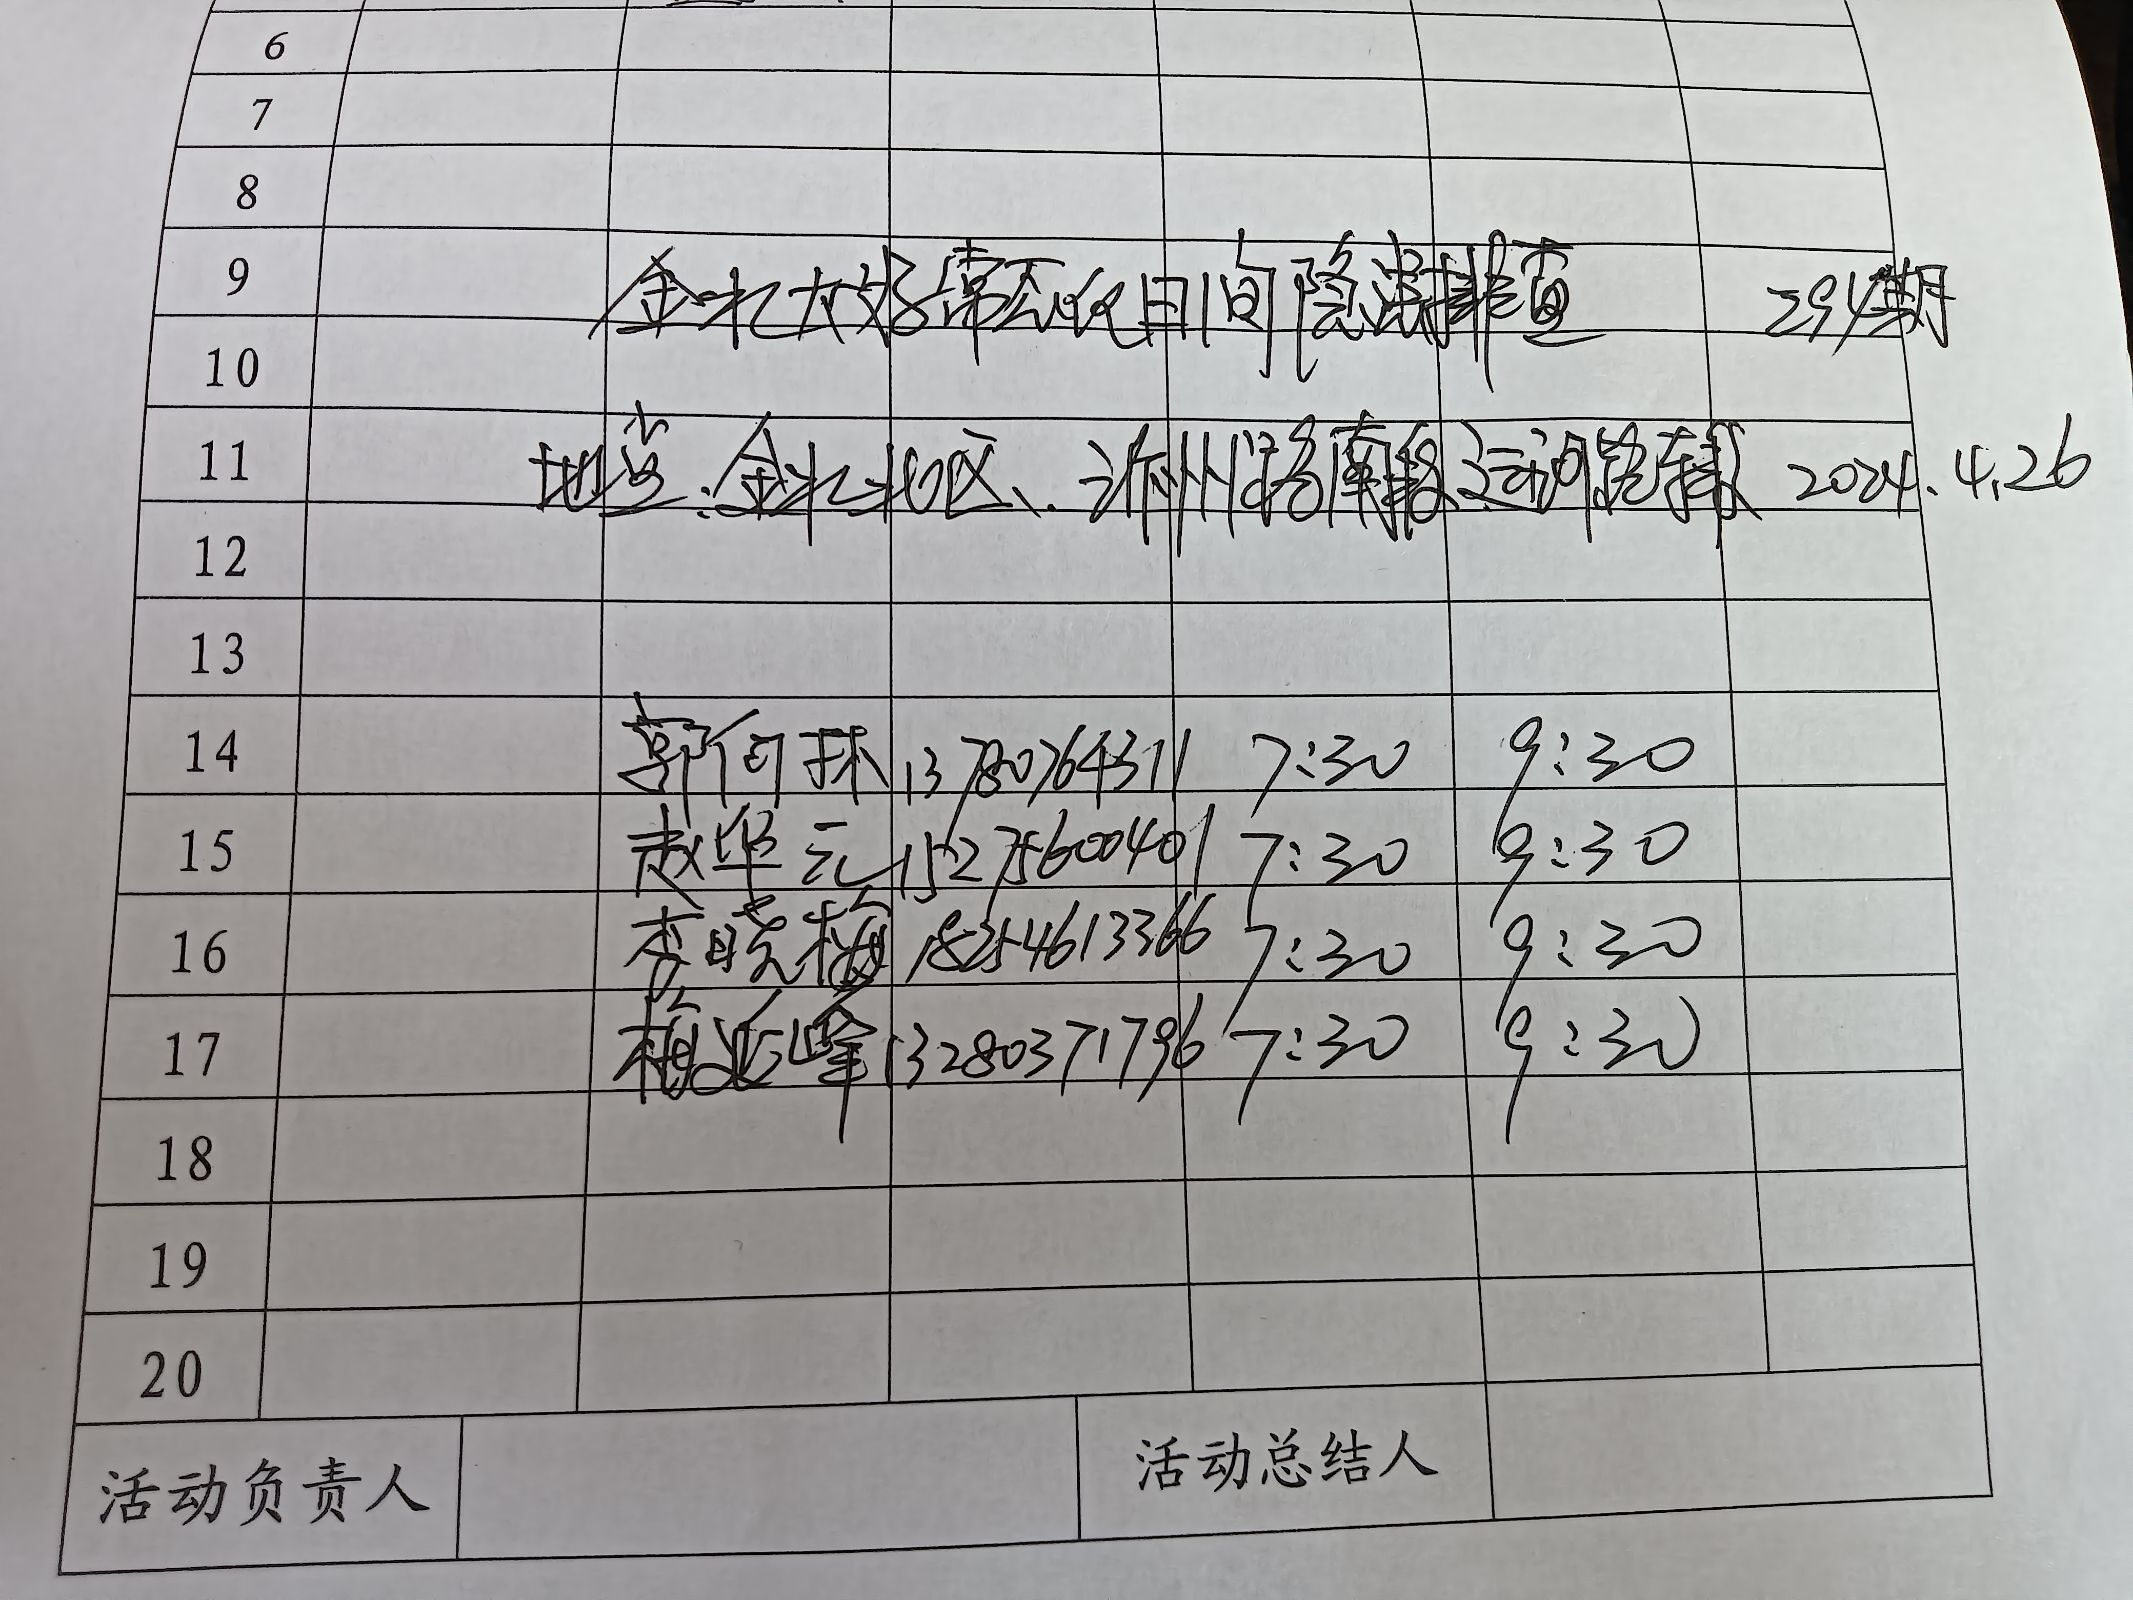 6
7
8
9 金水大好常态化日间隐患排查 294期
10
11 地点:金水北区、沂州路南段运河路东段 2024.4.26
12
13
14 郭何林 13780764311 7:30 9:30
15 赵华元 15275600401 7:30 9:30
16 李晓梅 18254613366 7:30 9:30
17 梅亚峰 13280371796 7:30 9:30
18
19
20
活动负责人 活动总结人